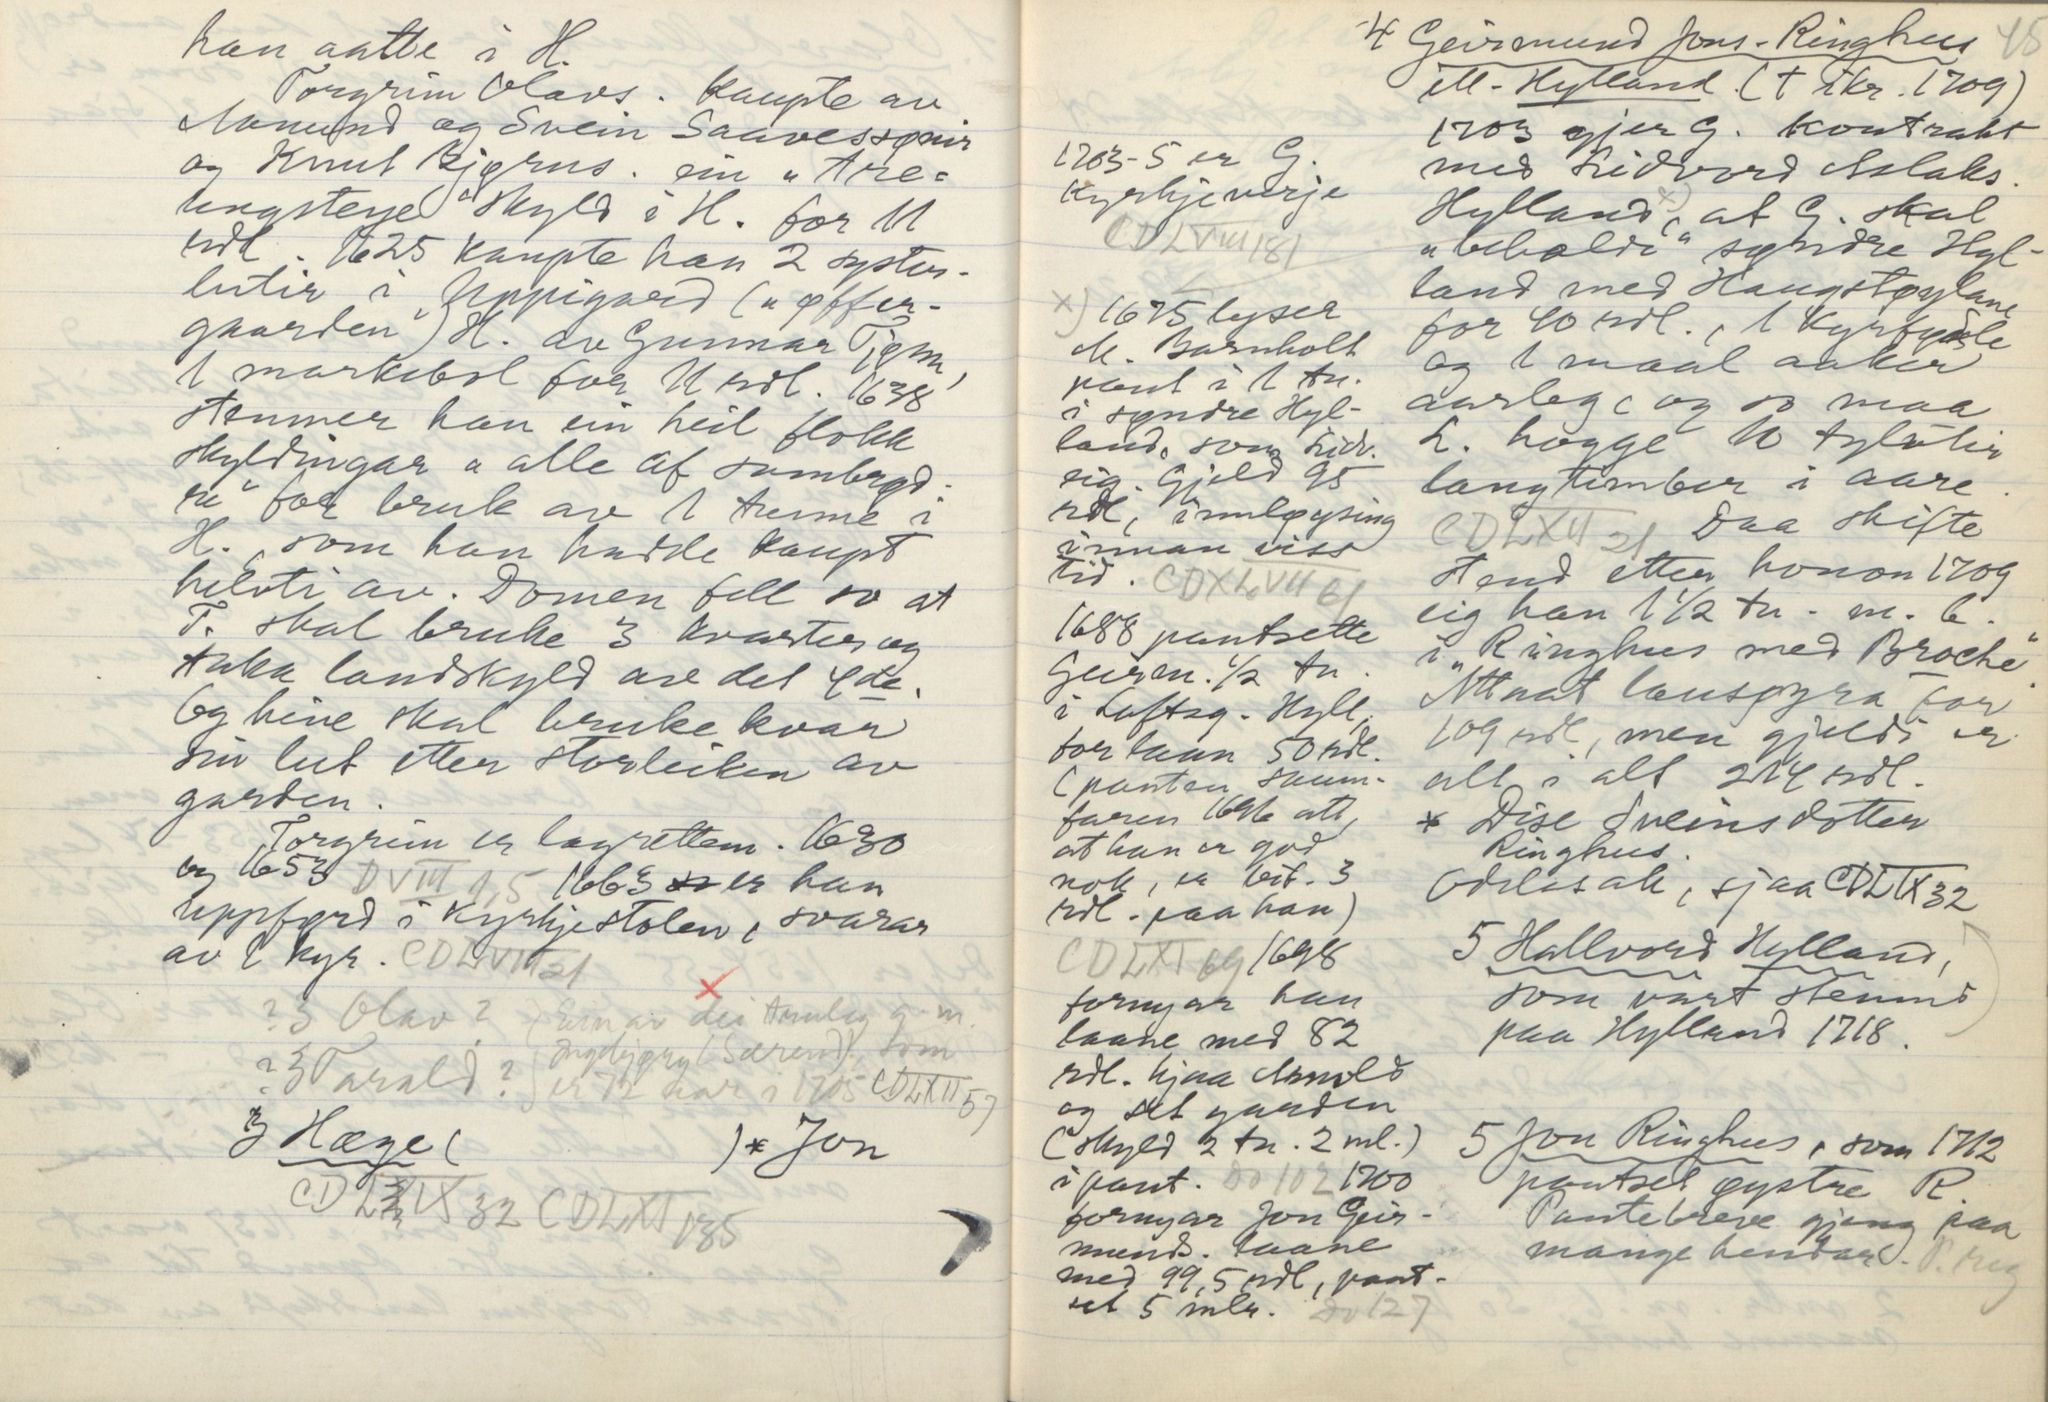 han aatte i H.
Torgrim Olavs. kaupte av
Aamund og Svein Saavessønir
og Knut Bjørns. ein „tre-
ungsteye" skyld i H. for 11
rdl. 1625 kaupte han 2 syster-
lutir i Uppigard („øffer-
gaarden") H. av Gunnar Tjøm,
1 markebol for 11 rdl. 1638
stemner han ein heil flokk
skyldingar „alle af sambrød-
re" for bruk av 1 tunne i
H., som han hadde kaupt
helvti av. Domen fell so at
T. skal bruke 3 kvarter og
taka landskyld av det 4de.
Og hine skal bruke kvar
sin lut etter storleiken av
garden.
Torgrim er lagrettem. 1630
og 1653 DVIII 9,5 1663 er han
uppførd i kyrkjestolen, svarar
av 1 kyr. CDLVII 21
? 3 Olav ?
? 3 Tarald ?
er 72 aar i 1705 CDLXII 57
3 Hæge (          ) * Jon
CDLIX 32 CDLXI 185
45
4 Geirmund Jons. Ringhus
ell. Hylland. († ikr. 1709)
1703 gjer G. kontrakt
med Lidvord Aslaks.
Hylland x), at G. skal
„beholde" søndre Hyl-
land med Haugstøylane
for 40 rdl., 1 kyrfødsle
og 1 maal aaker
aarleg, og so maa
L. hogge 10 tylvtir
langtimber i aare.
CDLXII 21 Daa skifte
stend etter honom 1709
eig han 1 1/2 tn. m. b.
i „Ringhus med Broche".
Attaat lausøyra for
109 rdl, men gjeldi er
alt i alt 214 rdl.
* Dise Sveinsdotter
Ringhus.
Odelssak, sjaa CDLIX 32
5 Hallvord Hylland,
som vart stemnd
paa Hylland 1718.
5 Jon Ringhus, som 1712
pantset øystre R.
Pantebreve gjeng paa
mange hendar.
1703-5 er G.
kyrkjeverje
CDLVIII 181
x) 1675 lyser
M. Barnholt
pant i 1 tn.
i søndre Hyl-
land, som Lidv.
eig. Gjeld 95
rdl, innløysing
innan viss
tid. CDXLVII 61
1688 pantsette
Geirm. 1/2 tn.
i Loftsg. Hyll.
for laan 50 rdl.
(panten saum-
faren 1696 att,
at han er god
nok, er bit. 3
rdl. paa han)
CDLXI 69 1698
fornyar han
laane med 82
rdl. hjaa Arnold
og set garden
(skyld 2 tn. 2 ml.)
i pant. Do 102 1700
fornyar Jon Geir-
munds. laane
med 99,5 rdl, pant-
set 5 mlr. Do 127